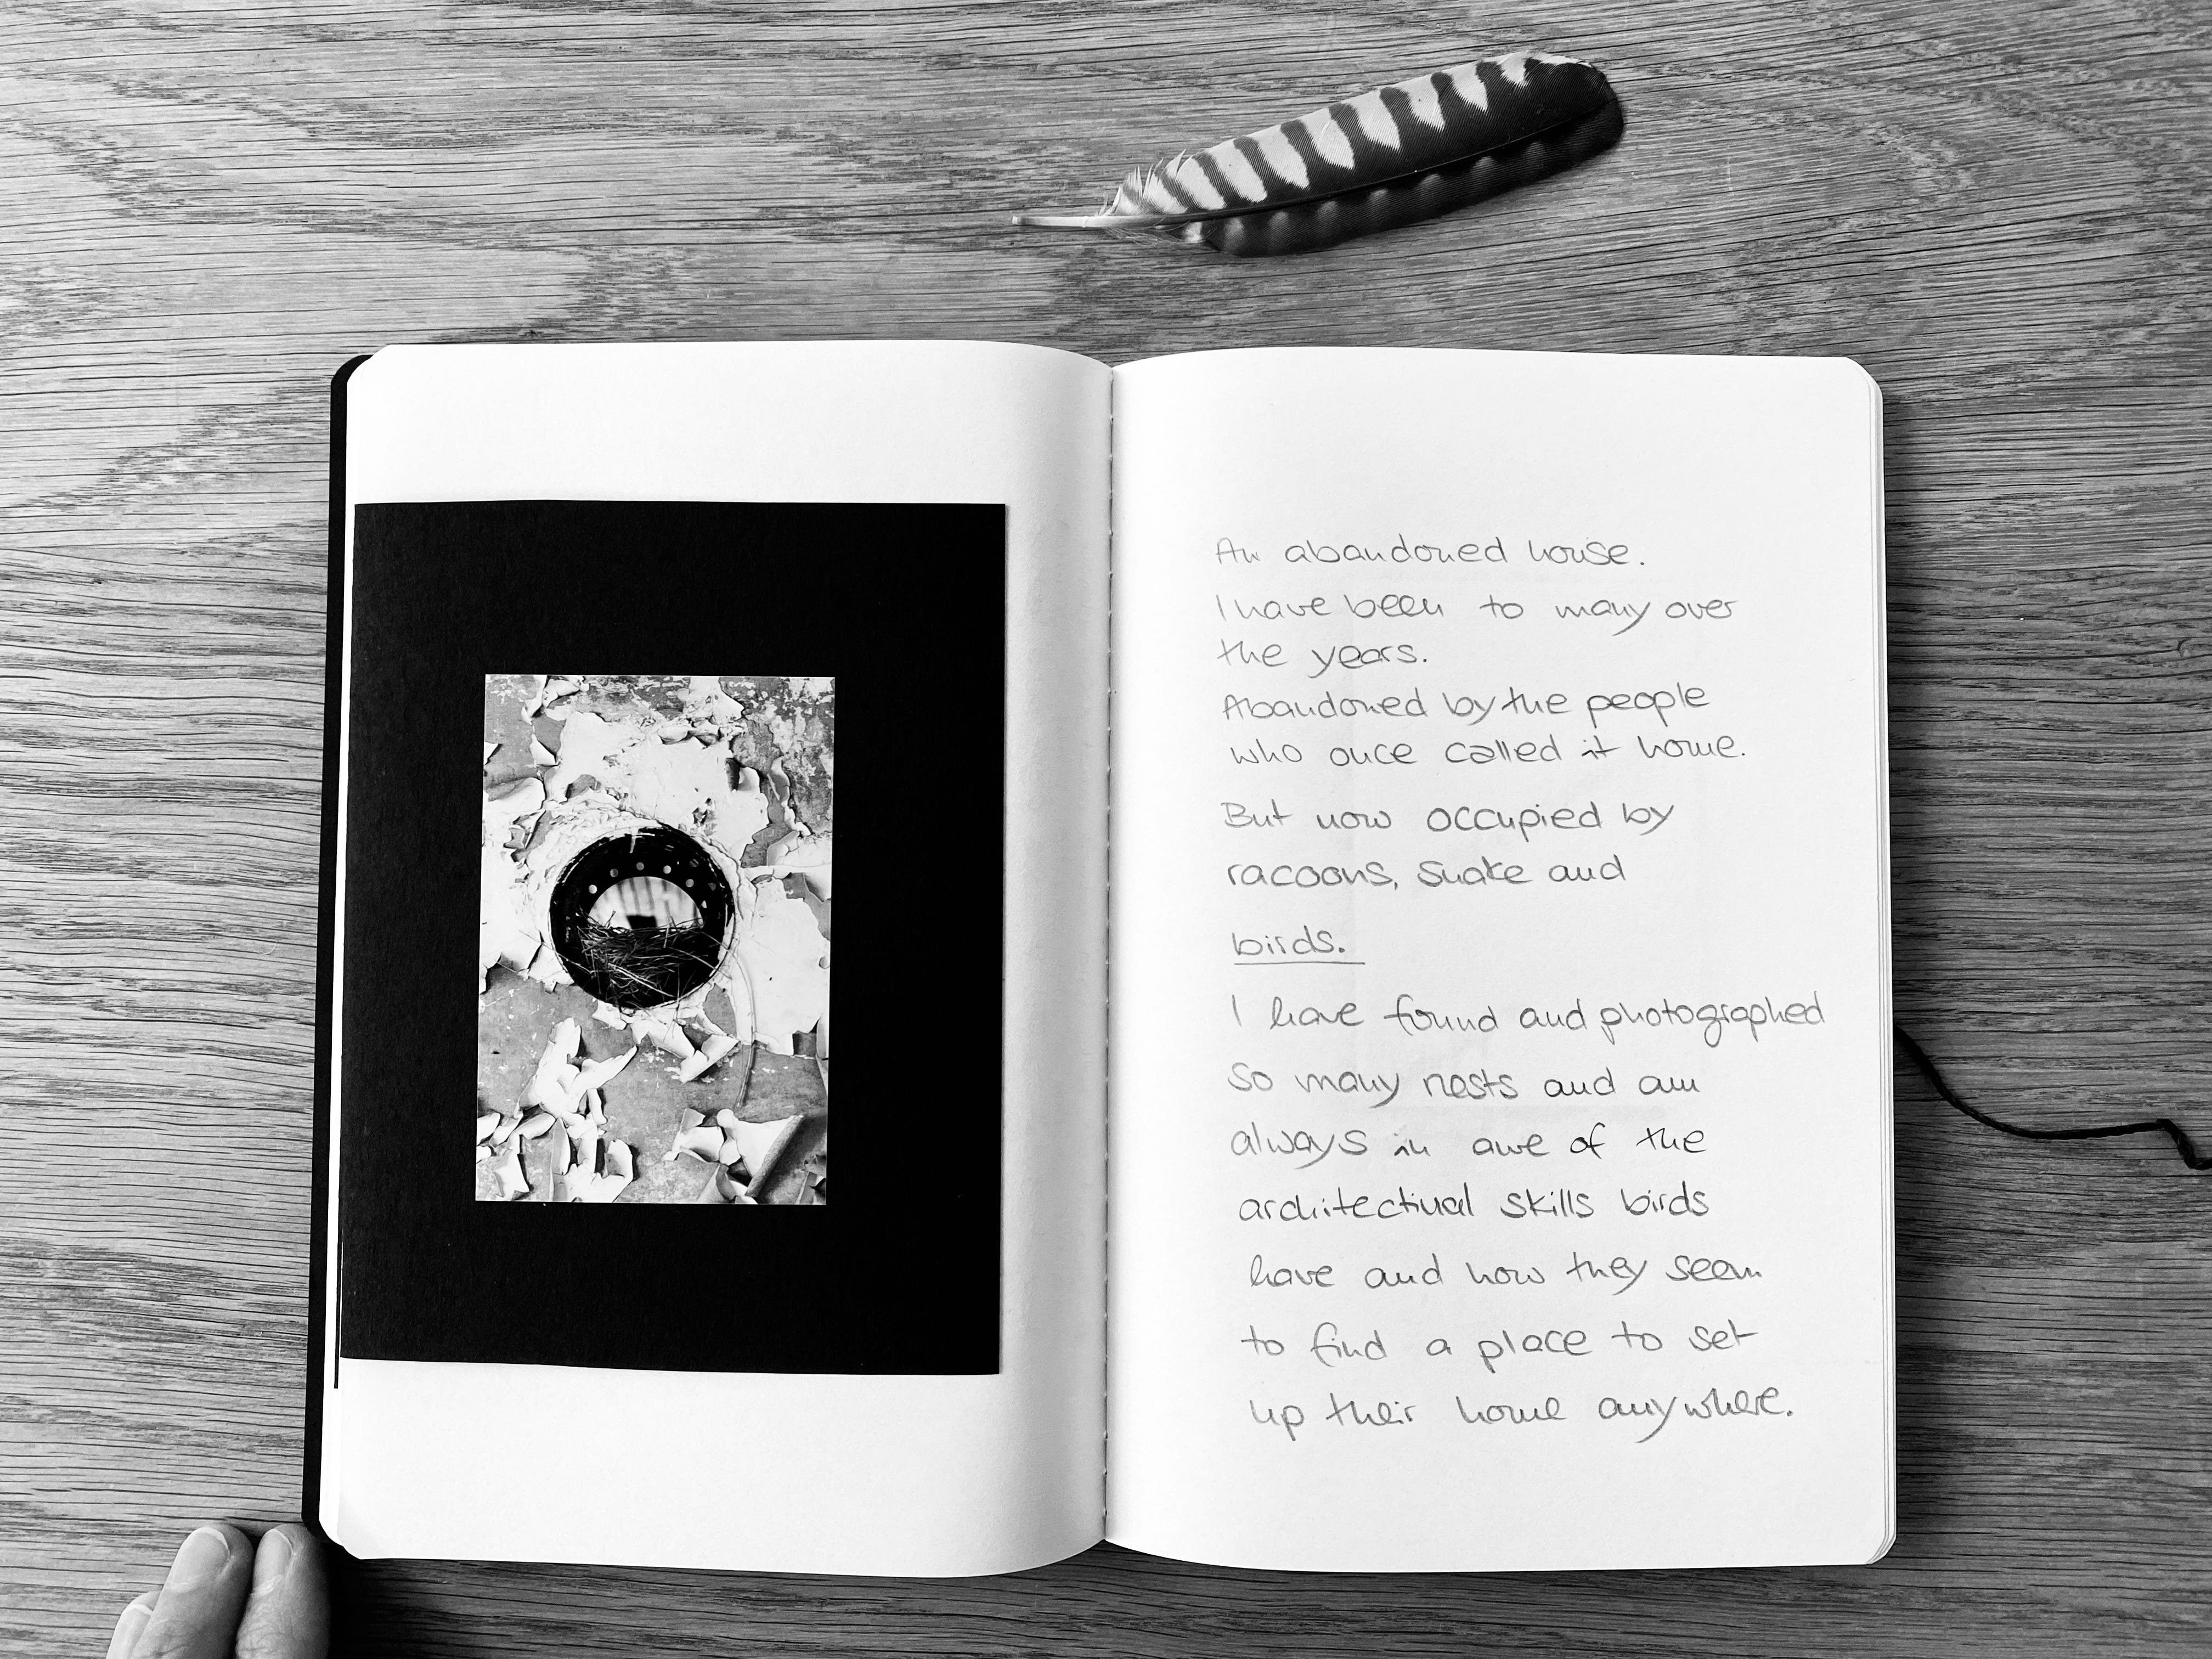 An abandoned house.
I have been to many over
the years.
Abandoned by the people
who once called it home.
But now occupied by
racoons, snake and
birds.
I have found and photographed
so many nests and am
always in awe of the
architectural skills birds
have and how they seem
to find a place to set
up their home anywhere.